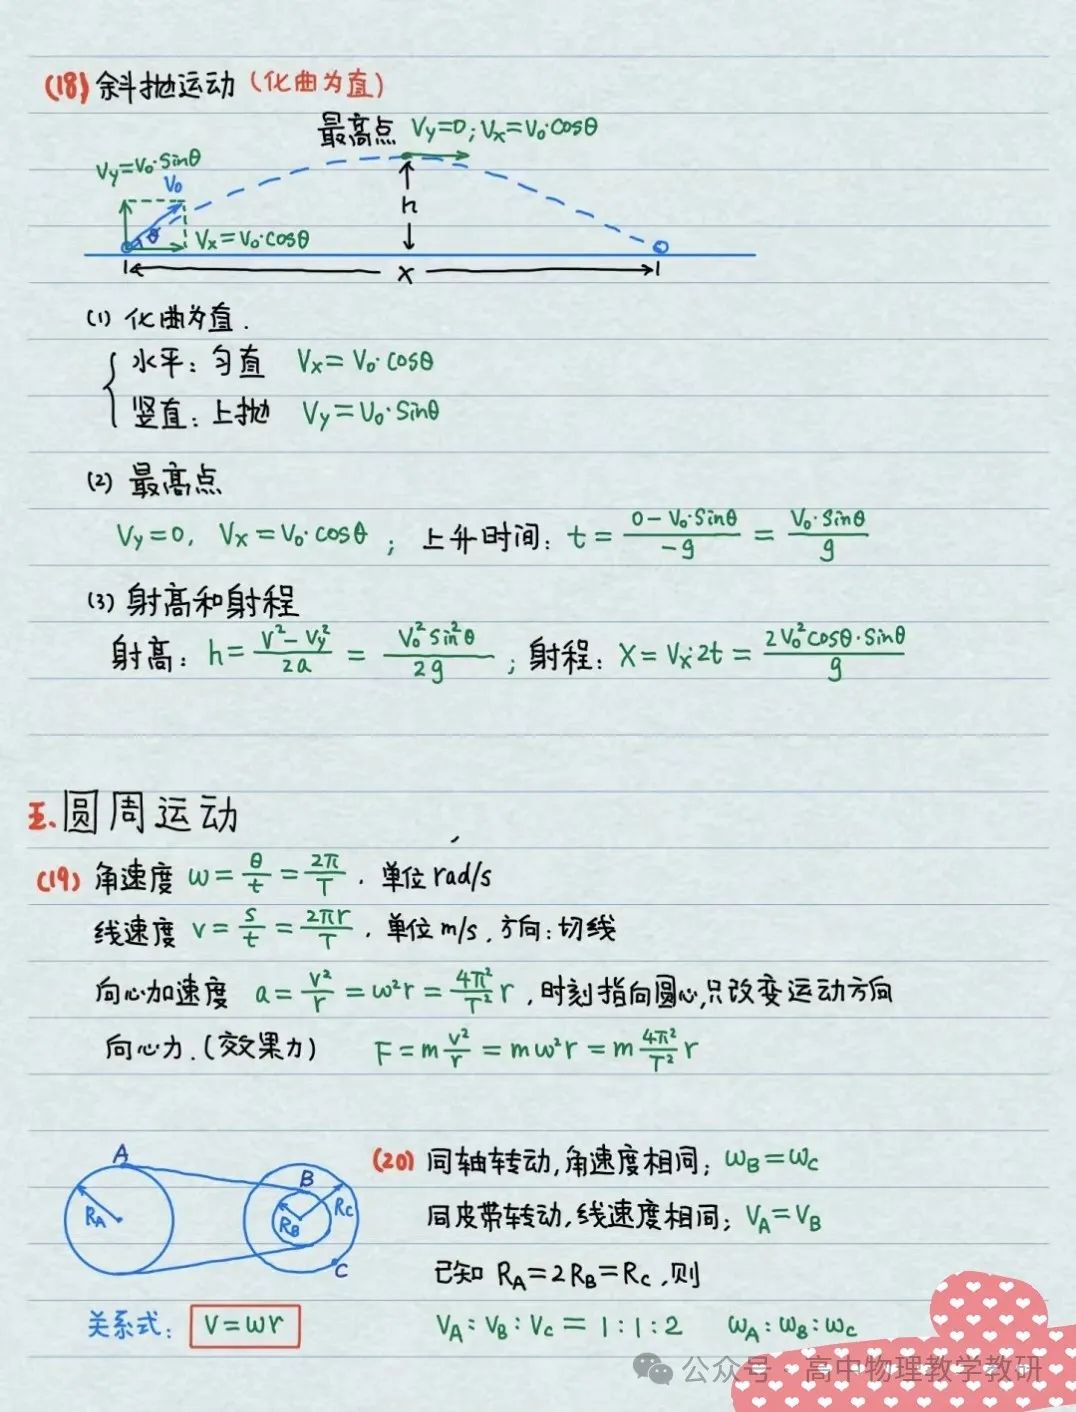 (18) 斜抛运动 (化曲为直)
最高点 Vy=0; Vx=V₀·cosθ
Vy=V₀·Sinθ
V₀
h
θ
Vx=V₀·cosθ
x
(1) 化曲为直.
水平: 匀直 Vx=V₀·cosθ
竖直: 上抛 Vy=V₀·Sinθ
(2) 最高点
Vy=0, Vx=V₀·cosθ ; 上升时间: t=(0-V₀·Sinθ)/(-g)=(V₀·Sinθ)/g
(3) 射高和射程
射高: h=(V²-Vy²)/2a=(V₀²Sin²θ)/2g ; 射程: X=Vx·2t=(2V₀²cosθ·Sinθ)/g
五. 圆周运动
(19) 角速度 ω=θ/t=2π/T . 单位 rad/s
线速度 v=s/t=2πr/T . 单位 m/s . 方向: 切线
向心加速度 a=v²/r=ω²r=(4π²/T²)r , 时刻指向圆心,只改变运动方向
向心力.(效果力) F=m(v²/r)=mω²r=m(4π²/T²)r
A
B
RA
RB
Rc
C
(20) 同轴转动,角速度相同; ωB=ωC
同皮带转动,线速度相同; VA=VB
已知 RA=2RB=RC ,则
关系式: V=ωr
VA:VB:VC=1:1:2 ωA:ωB:ωC
公众号 · 高中物理教学教研